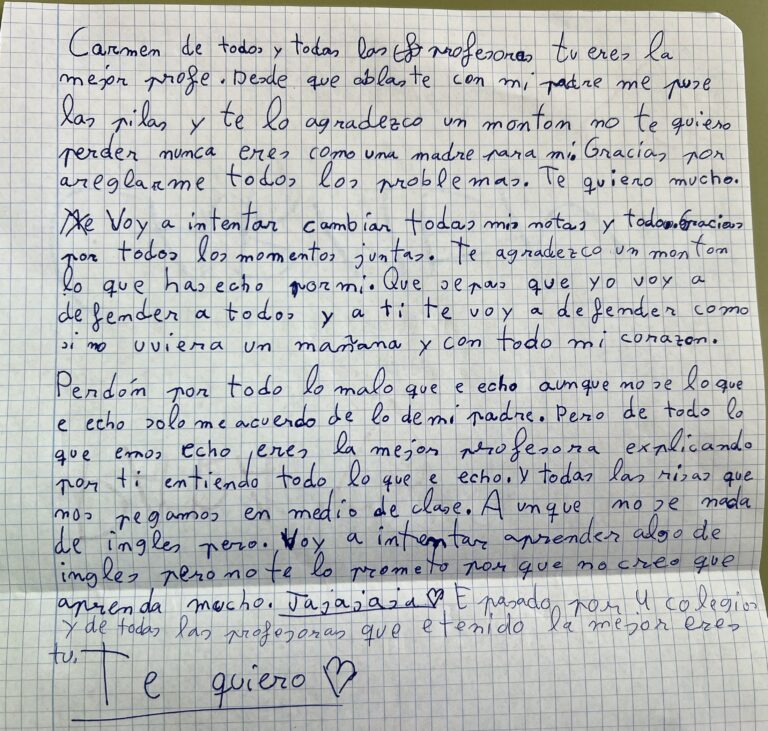 Carmen de todos y todas las profesoras tu eres la
mejor profe. Desde que ablaste con mi padre me puse
las pilas y te lo agradezco un monton no te quiero
perder nunca eres como una madre para mi. Gracias por
areglarme todos los problemas. Te quiero mucho.
Voy a intentar cambiar todas mis notas y todo. Gracias
por todos los momentos juntas. Te agradezco un monton
lo que has echo por mi. Que sepas que yo voy a
defender a todos y a ti te voy a defender como
si no uviera un mañana y con todo mi corazon.
Perdón por todo lo malo que e echo aunque no se lo que
e echo solo me acuerdo de lo de mi padre. Pero de todo lo
que emos echo eres la mejor profesora explicando
por ti entiendo todo lo que e echo. y todas las risas que
nos pegamos en medio de clase. Aunque no se nada
de ingles pero. Voy a intentar aprender algo de
ingles pero no te lo prometo por que no creo que
aprenda mucho. Jajajaja ♡ E pasado por 4 colegios
y de todas las profesoras que e tenido la mejor eres
tu.
Te quiero ♡